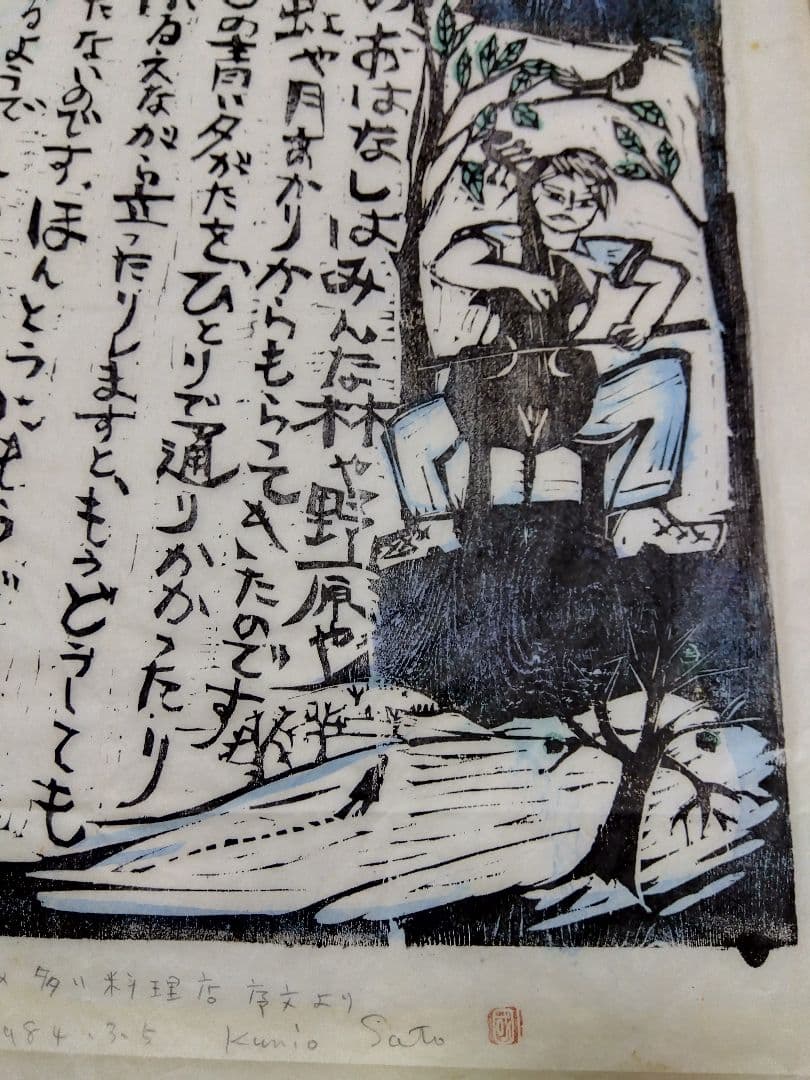 のおはなしはみんな林や野原や
虹や月あかりからもらってきたのです
の青い夕がたを、ひとりで通りかかったり
るえながら立ったりしますと、もうどうしても
たないのです、ほんとうにもうど
るようで
多い料理店 序文より
984.3.5 Kunio Sato